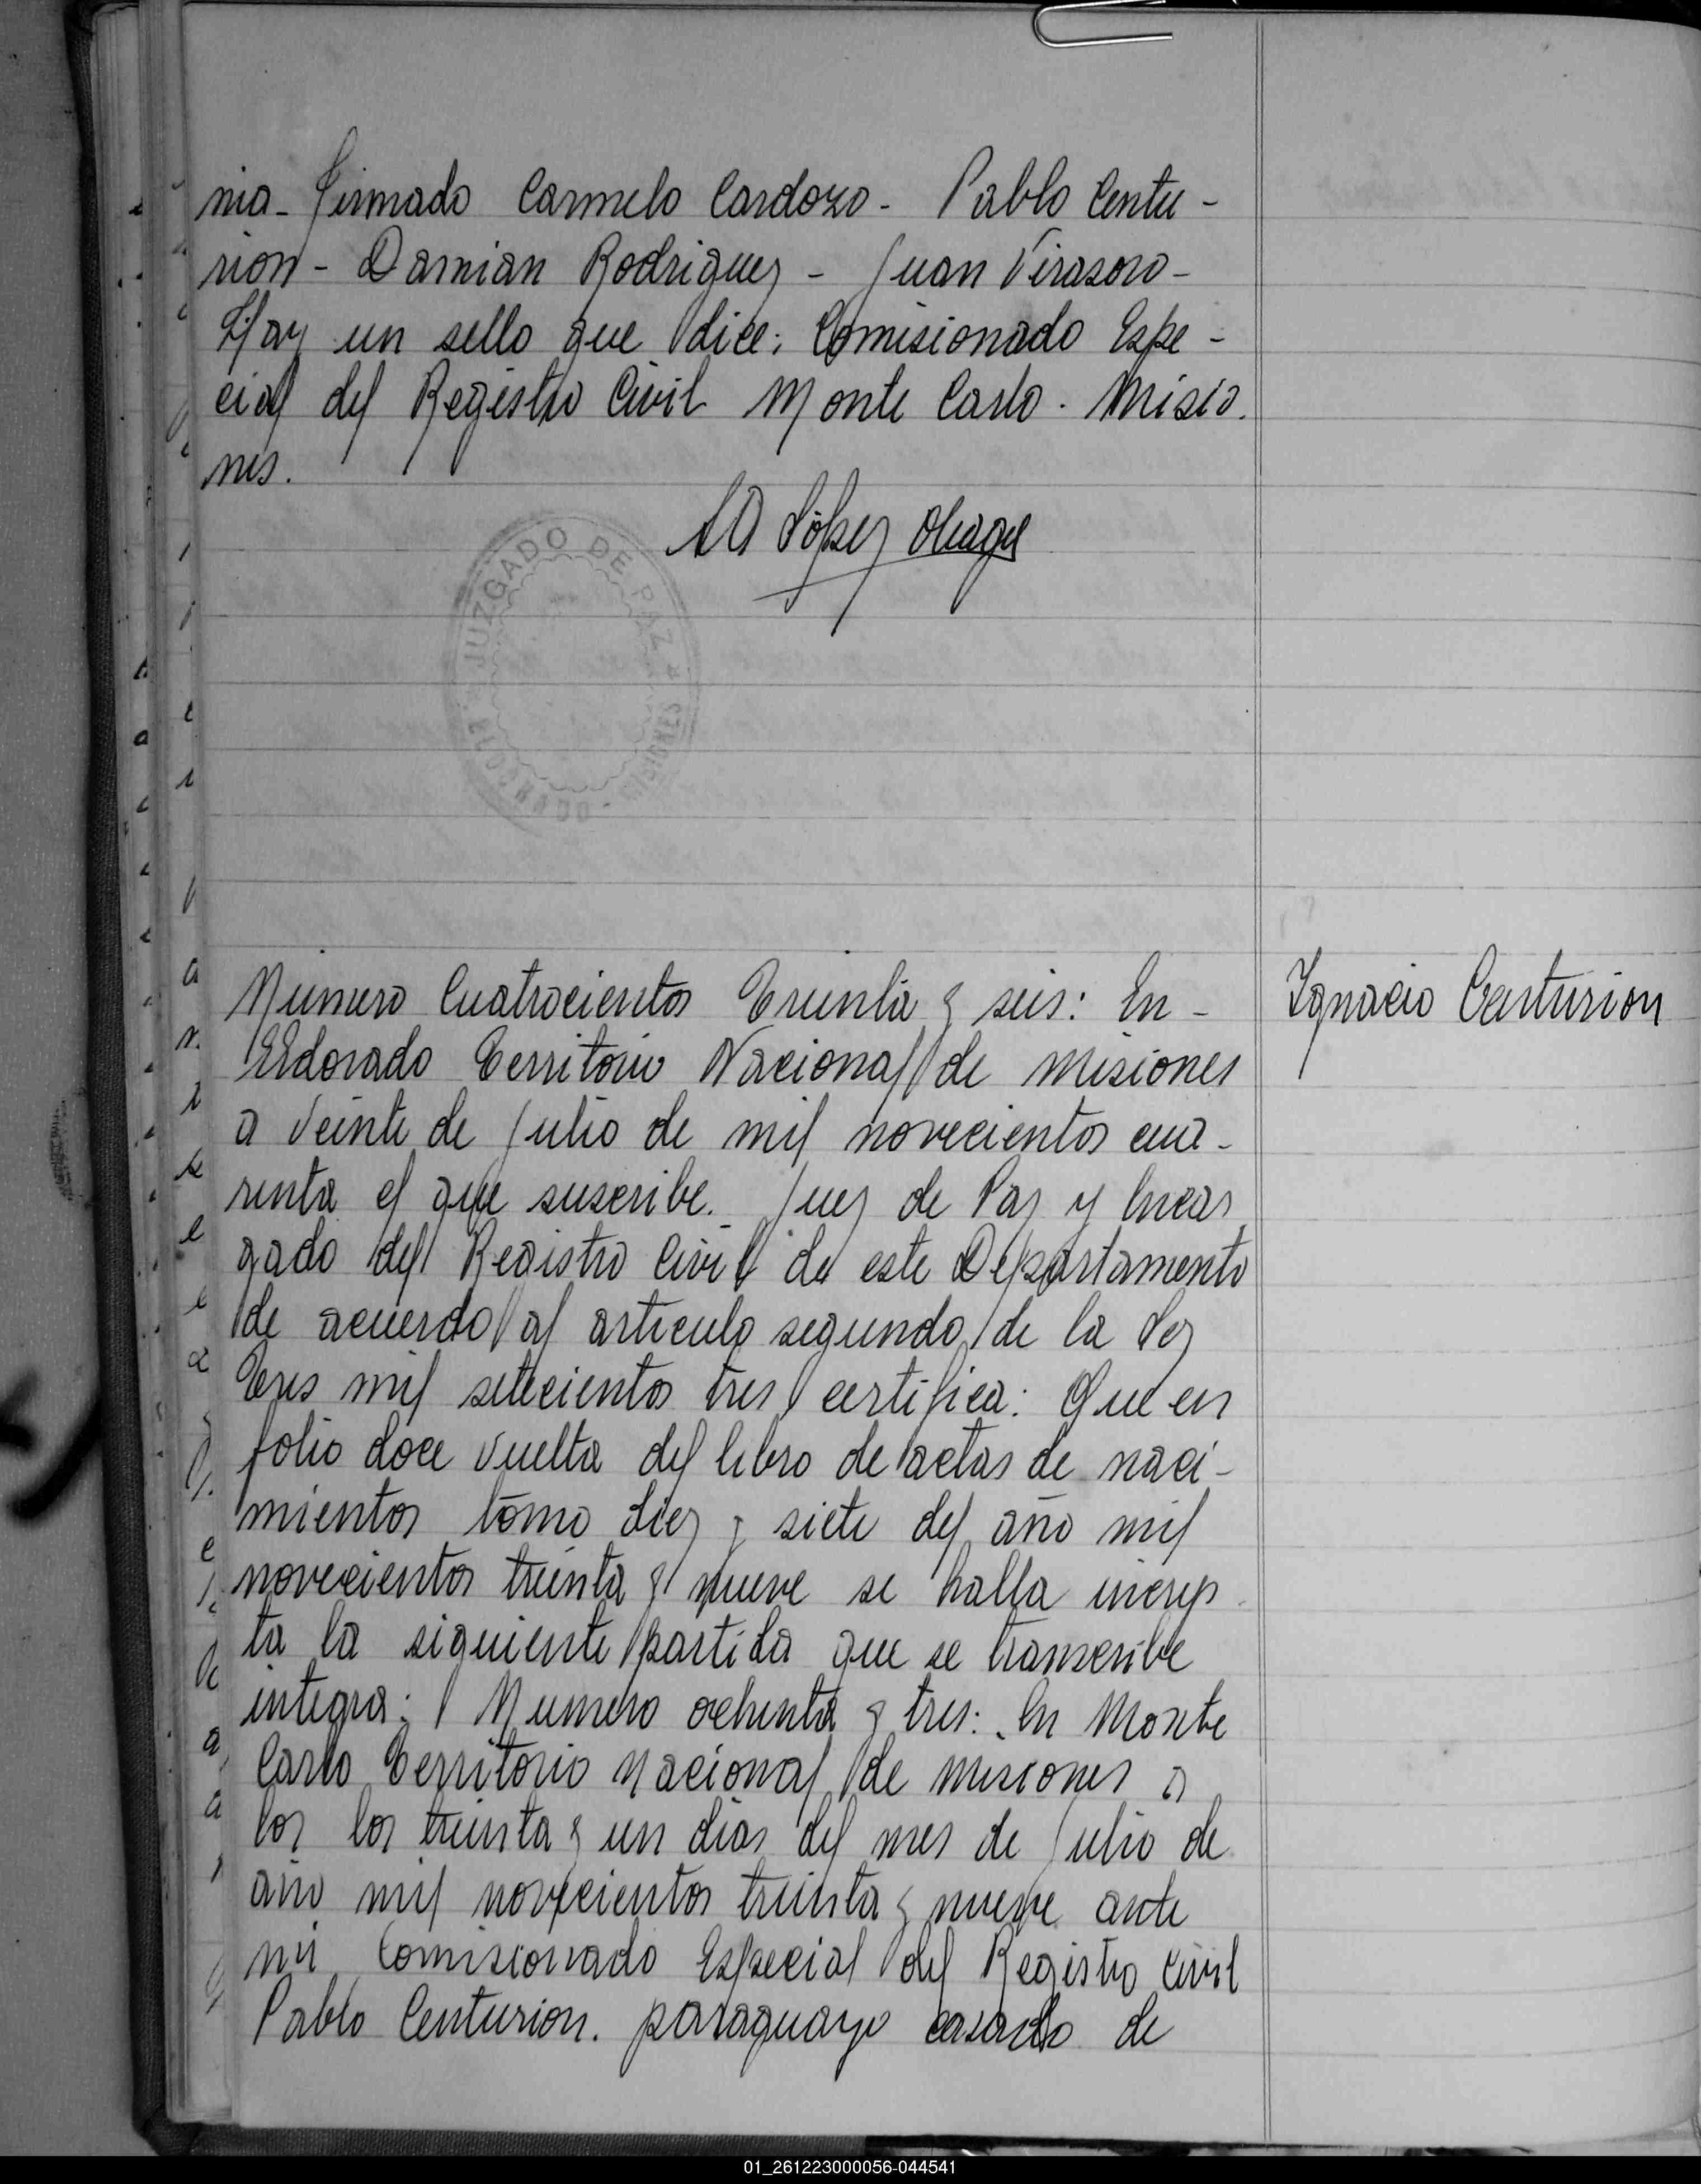 nia - Firmado Carmelo Cardozo - Pablo Centu -
rion - Damian Rodriguez - Juan Virasoro -
Hay un sello que dice: Comisionado Espe -
cial del Registro Civil Monte Carlo. Misio.
nes.
López
JUZGADO DE PAZ
Número Cuatrocientos Treinta y seis: En -
Eldorado Territorio Nacional de Misiones
a veinte de Julio de mil novecientos cua -
renta el que suscribe. Juez de Paz y Encar
gado del Registro Civil de este Departamento
de acuerdo al articulo segundo de la Ley
Tres mil setecientos tres certifica: Que en
folio doce vuelta del libro de actas de naci -
mientos tomo diez y siete del año mil
novecientos treinta y nueve se halla inscrip
ta la siguiente partida que se transcribe
integra: Numero ochenta y tres: En Monte
Carlo Territorio Nacional de Misiones a
los los treinta y un dias del mes de Julio de
año mil novecientos treinta y nueve ante
mi Comisionado Especial del Registro Civil
Pablo Centurion. paraguayo casado de
Ignacio Centurion
01_261223000056-044541